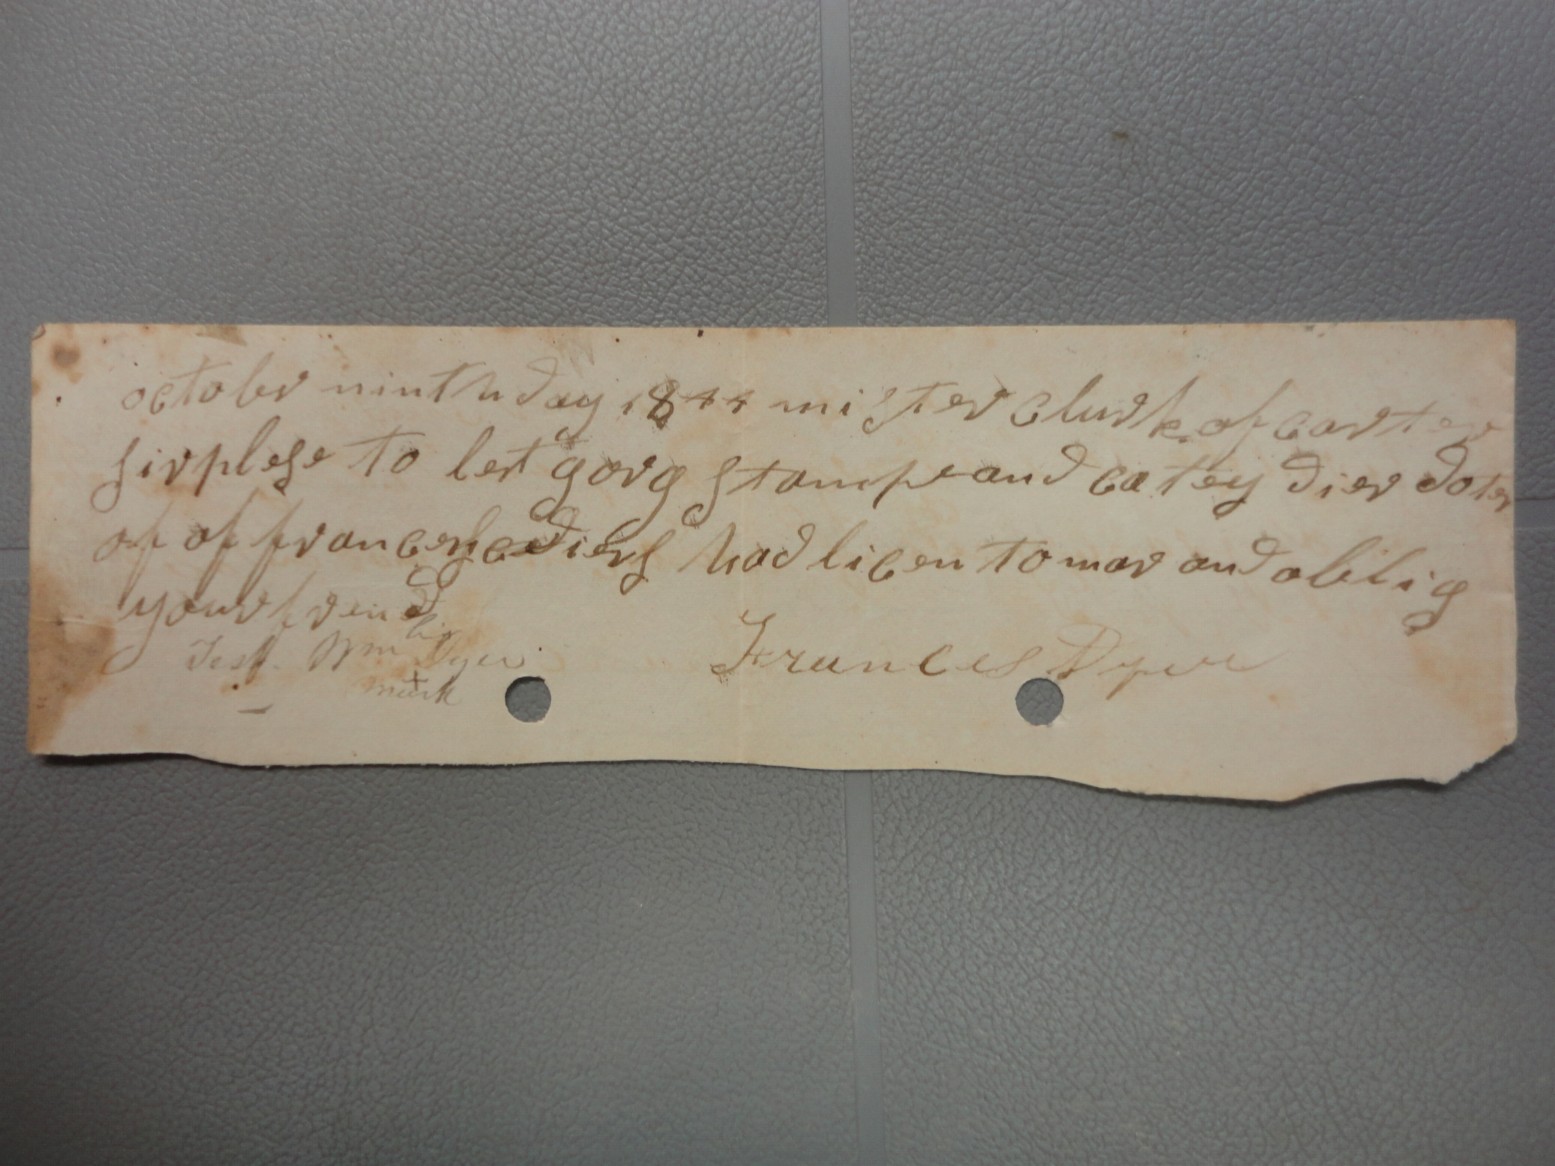 october ninth day 1844 mister clurk of carter
sir plese to let gorg stamp and catey dier doter
of of frances diers had licen to mar and oblig
your frend
Test. Wm his Dyer Frances Dyer
mark